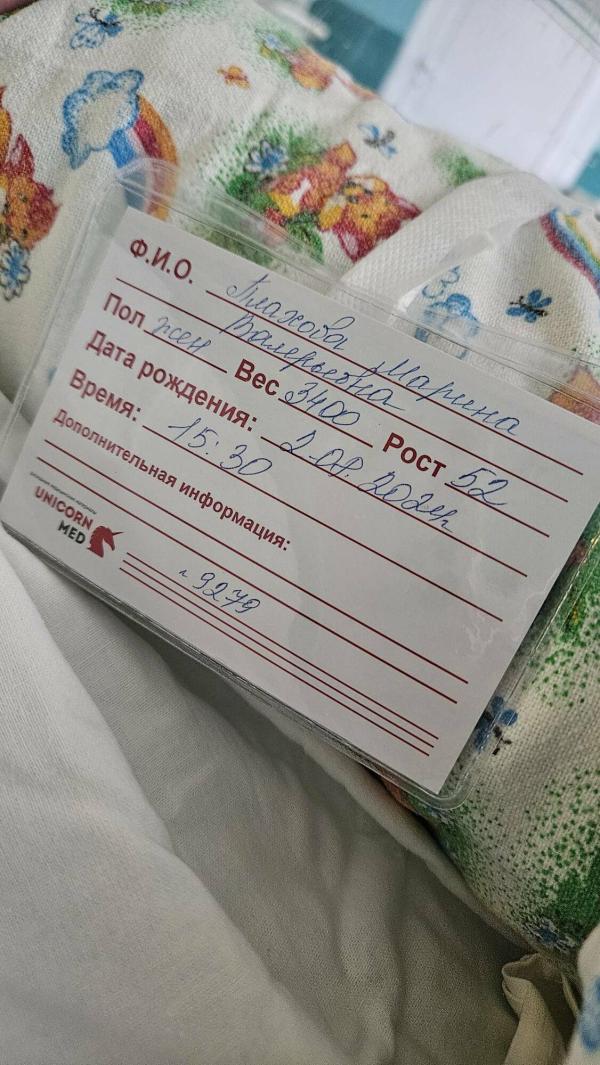 Ф.И.О. Плахова Марина
Валерьевна
Пол жен Вес 3400 Рост 52
Дата рождения: 2.08.2024
Время: 15:30
Дополнительная информация:
UNICORN
MED
9279